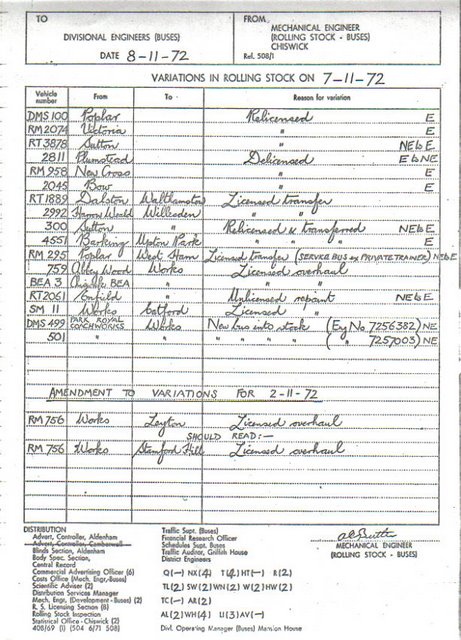 TO
DIVISIONAL ENGINEERS (BUSES)
DATE 8-11-72
FROM
MECHANICAL ENGINEER
(ROLLING STOCK - BUSES)
CHISWICK
Ref. 508/1
VARIATIONS IN ROLLING STOCK ON 7-11-72
Vehicle number From To Reason for variation
DMS 100 Poplar Relicensed E
RM 2074 Victoria " E
RT 3878 Sutton " NE to E
2811 Plumstead Delicensed E to NE
RM 958 New Cross " E
2045 Bow " E
RT1889 Dalston Walthamstow Licensed transfer
2992 Harrow Weald Willesden " "
300 Sutton " Relicensed & transferred NE to E
4551 Barking Upton Park " " " E
RM 295 Poplar West Ham Licensed transfer (SERVICE BUS ex PRIVATE TRAINER) NE to E
759 Abbey Wood Works Licensed overhaul
BEA 3 Chiswick BEA " " "
RT2061 Enfield " Unlicensed repaint NE to E
SM 11 Works Catford Licensed "
DMS 499 PARK ROYAL COACHWORKS Works New bus into stock (Eng No 7256382) NE
501 " " " " " " ( " 7257003) NE
AMENDMENT TO VARIATIONS FOR 2-11-72
RM 756 Works Leyton Licensed overhaul
SHOULD READ:—
RM 756 Works Stamford Hill Licensed overhaul
DISTRIBUTION
Advert. Controller, Aldenham
Advert. Controller, Camberwell
Blinds Section, Aldenham
Body Spec. Section,
Central Record
Commercial Advertising Officer (6)
Costs Office (Mech. Engr.-Buses)
Scientific Adviser (2)
Distribution Services Manager
Mech. Engr. (Development - Buses) (2)
R. S. Licensing Section (8)
Rolling Stock Inspection
Statistical Office - Chiswick (2)
408/69 (i) (504 6/71 508)
Traffic Supt. (Buses)
Financial Research Officer
Schedules Supt. Buses
Traffic Auditor, Griffith House
District Engineers
Q(—) NX(4) T(4) HT(—) R(2)
TL(2) SW(2) WN(2) W(2) HW(2)
TC(—) AR(2)
AL(2) WH(4) U(3) AV(—)
Divl. Operating Manager (Buses) Mansion House
MECHANICAL ENGINEER
(ROLLING STOCK - BUSES)